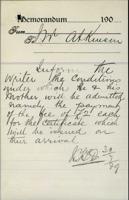 Memorandum, 190
From
J W Atkinson
Inform the
Writer the conditions
under which he & his
Mother will be admitted
namely the payment
of the fee of £2 each
for the Certificate which
will be issued on
their arrival
30